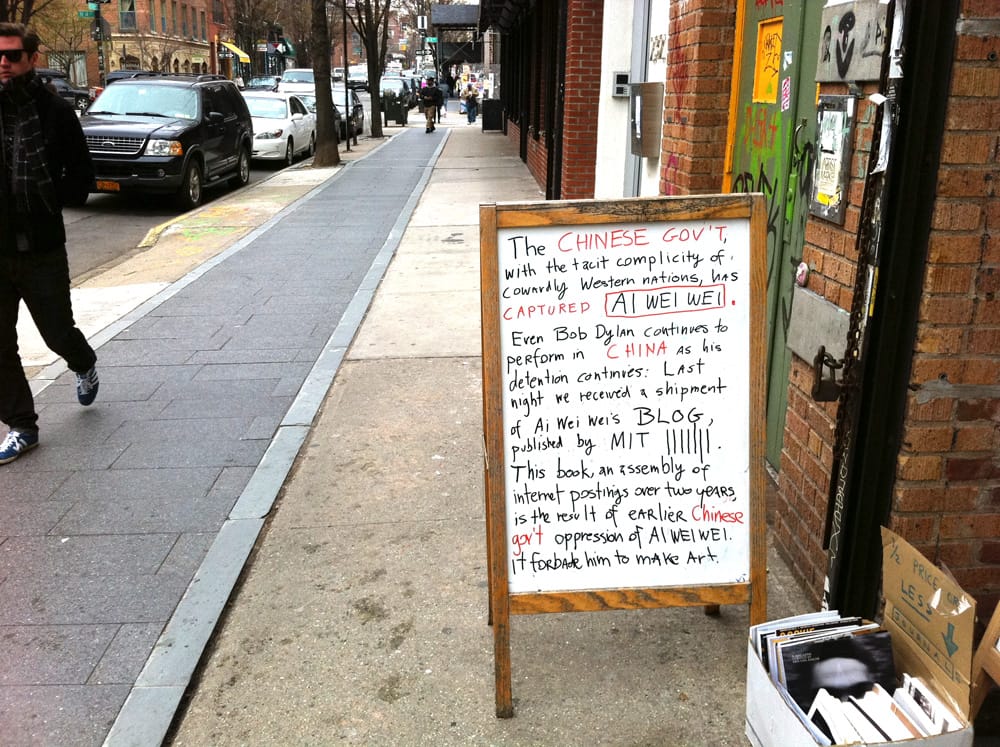 The CHINESE GOV'T,
with the tacit complicity of
cowardly Western nations, has
CAPTURED AI WEI WEI.
Even Bob Dylan continues to
perform in CHINA as his
detention continues: Last
night we received a shipment
of Ai Wei Wei's BLOG,
published by MIT
This book, an assembly of
internet postings over two years,
is the result of earlier Chinese
gov't oppression of AI WEI WEI.
It forbade him to make Art.
1/2 PRICE OR
LESS